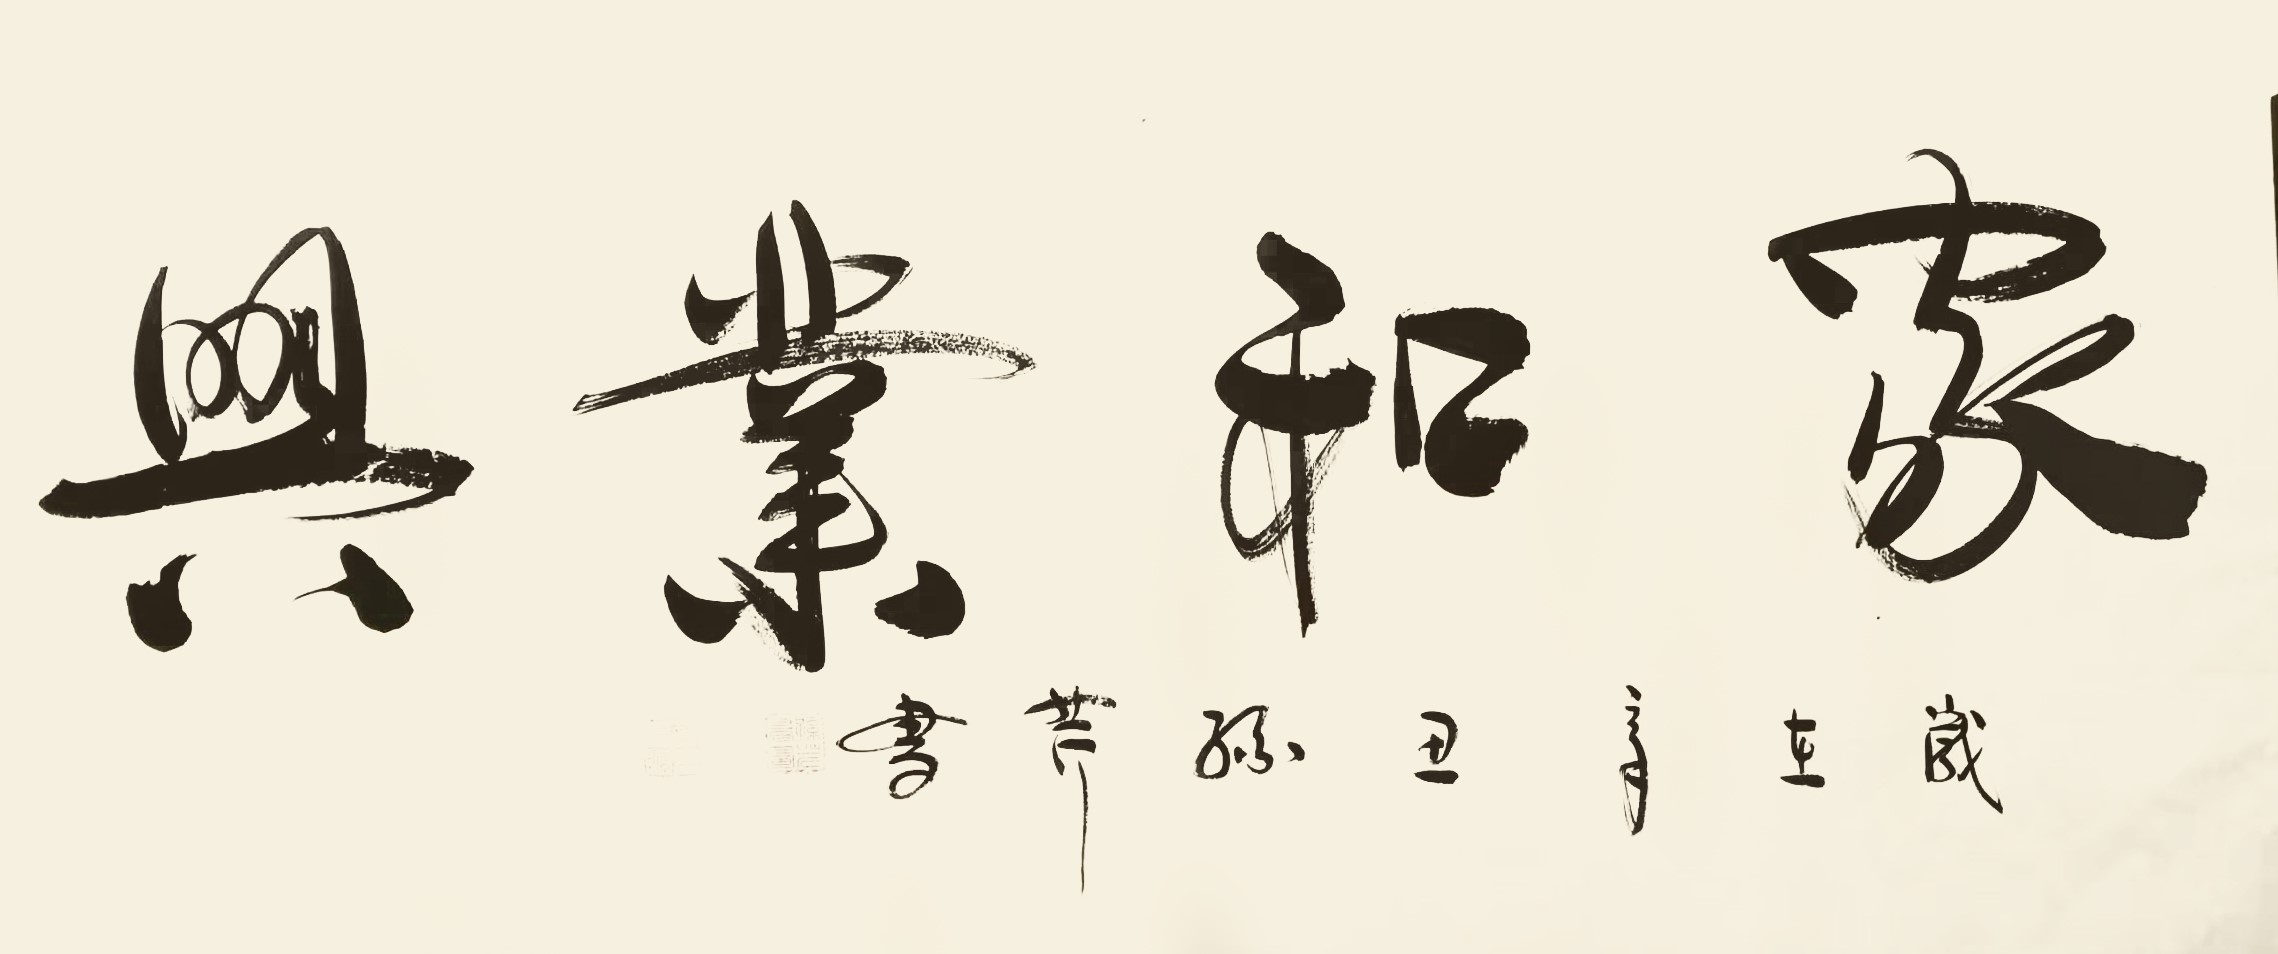 家和業興
歲在辛丑孫芹書